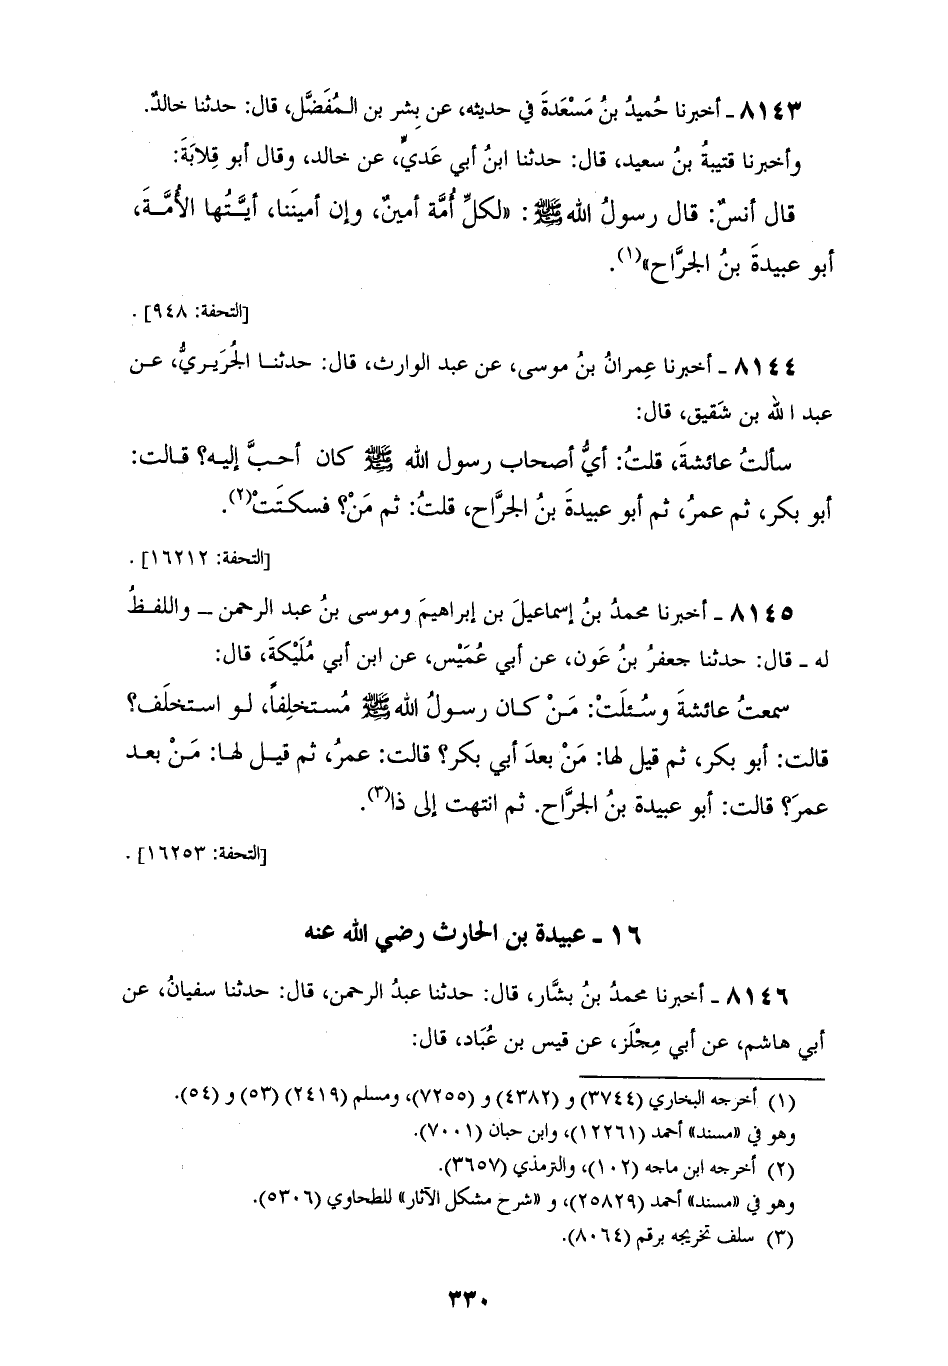 ٨١٤٣ ـ أخبرنا حُميدُ بنُ مَسْعَدةَ في حديثه، عن بِشر بن المُفَضَّل، قال: حدثنا خالدٌ.
وأخبرنا قتيبةُ بنُ سعيد، قال: حدثنا ابنُ أبي عَديٍّ، عن خالد، وقال أبو قِلابَةَ:
قال أنسٌ: قال رسولُ الله ﷺ: «لكلِّ أُمَّة أمينٌ، وإن أمينَنا، أيـَّتُها الأُمَّـةَ،
أبو عبيدةَ بنُ الجرَّاح»(١).
[التحفة: ٩٤٨] .
٨١٤٤ ـ أخبرنا عِمرانُ بنُ موسى، عن عبد الوارث، قال: حدثنـا الجُرَيـريُّ، عـن
عبد الله بن شَقيق، قال:
سألتُ عائشةَ، قلتُ: أيُّ أصحاب رسول الله ﷺ كان أحـبَّ إليـه؟ قـالت:
أبو بكر، ثم عمرُ، ثم أبو عبيدةَ بنُ الجرَّاح، قلتُ: ثم مَنْ؟ فسكتَتْ(٢).
[التحفة: ١٦٢١٢] .
٨١٤٥ ـ أخبرنا محمدُ بنُ إسماعيلَ بن إبراهيمَ وموسى بنُ عبد الرحمن ــ واللفـظُ
له ـ قال: حدثنا جعفرُ بنُ عَون، عن أبي عُمَيْس، عن ابن أبي مُلَيْكةَ، قال:
سمعتُ عائشةَ وسُئلَتْ: مَـنْ كـان رسـولُ الله ﷺ مُـستخلِفاً، لـو اسـتخلَف؟
قالت: أبو بكر، ثم قيل لها: مَنْ بعدَ أبي بكر؟ قالت: عمرُ، ثم قيـل لهـا: مَـنْ بعـد
عمرَ؟ قالت: أبو عبيدة بنُ الجرَّاح. ثم انتهت إلى ذا(٣).
[التحفة: ١٦٢٥٣] .
١٦ ـ عبيدة بن الحارث رضي الله عنه
٨١٤٦ ـ أخبرنا محمدُ بنُ بشَّار، قال: حدثنا عبدُ الرحمن، قال: حدثنا سفيانُ، عن
أبي هاشم، عن أبي مِجْلَز، عن قيس بن عُبَاد، قال:
(١) أخرجه البخاري (٣٧٤٤) و (٤٣٨٢) و (٧٢٥٥)، ومسلم (٢٤١٩) (٥٣) و (٥٤).
وهو في «مسند» أحمد (١٢٢٦١)، وابن حبان (٧٠٠١).
(٢) أخرجه ابن ماجه (١٠٢)، والترمذي (٣٦٥٧).
وهو في «مسند» أحمد (٢٥٨٢٩)، و «شرح مشكل الآثار» للطحاوي (٥٣٠٦).
(٣) سلف تخريجه برقم (٨٠٦٤).
٣٣٠